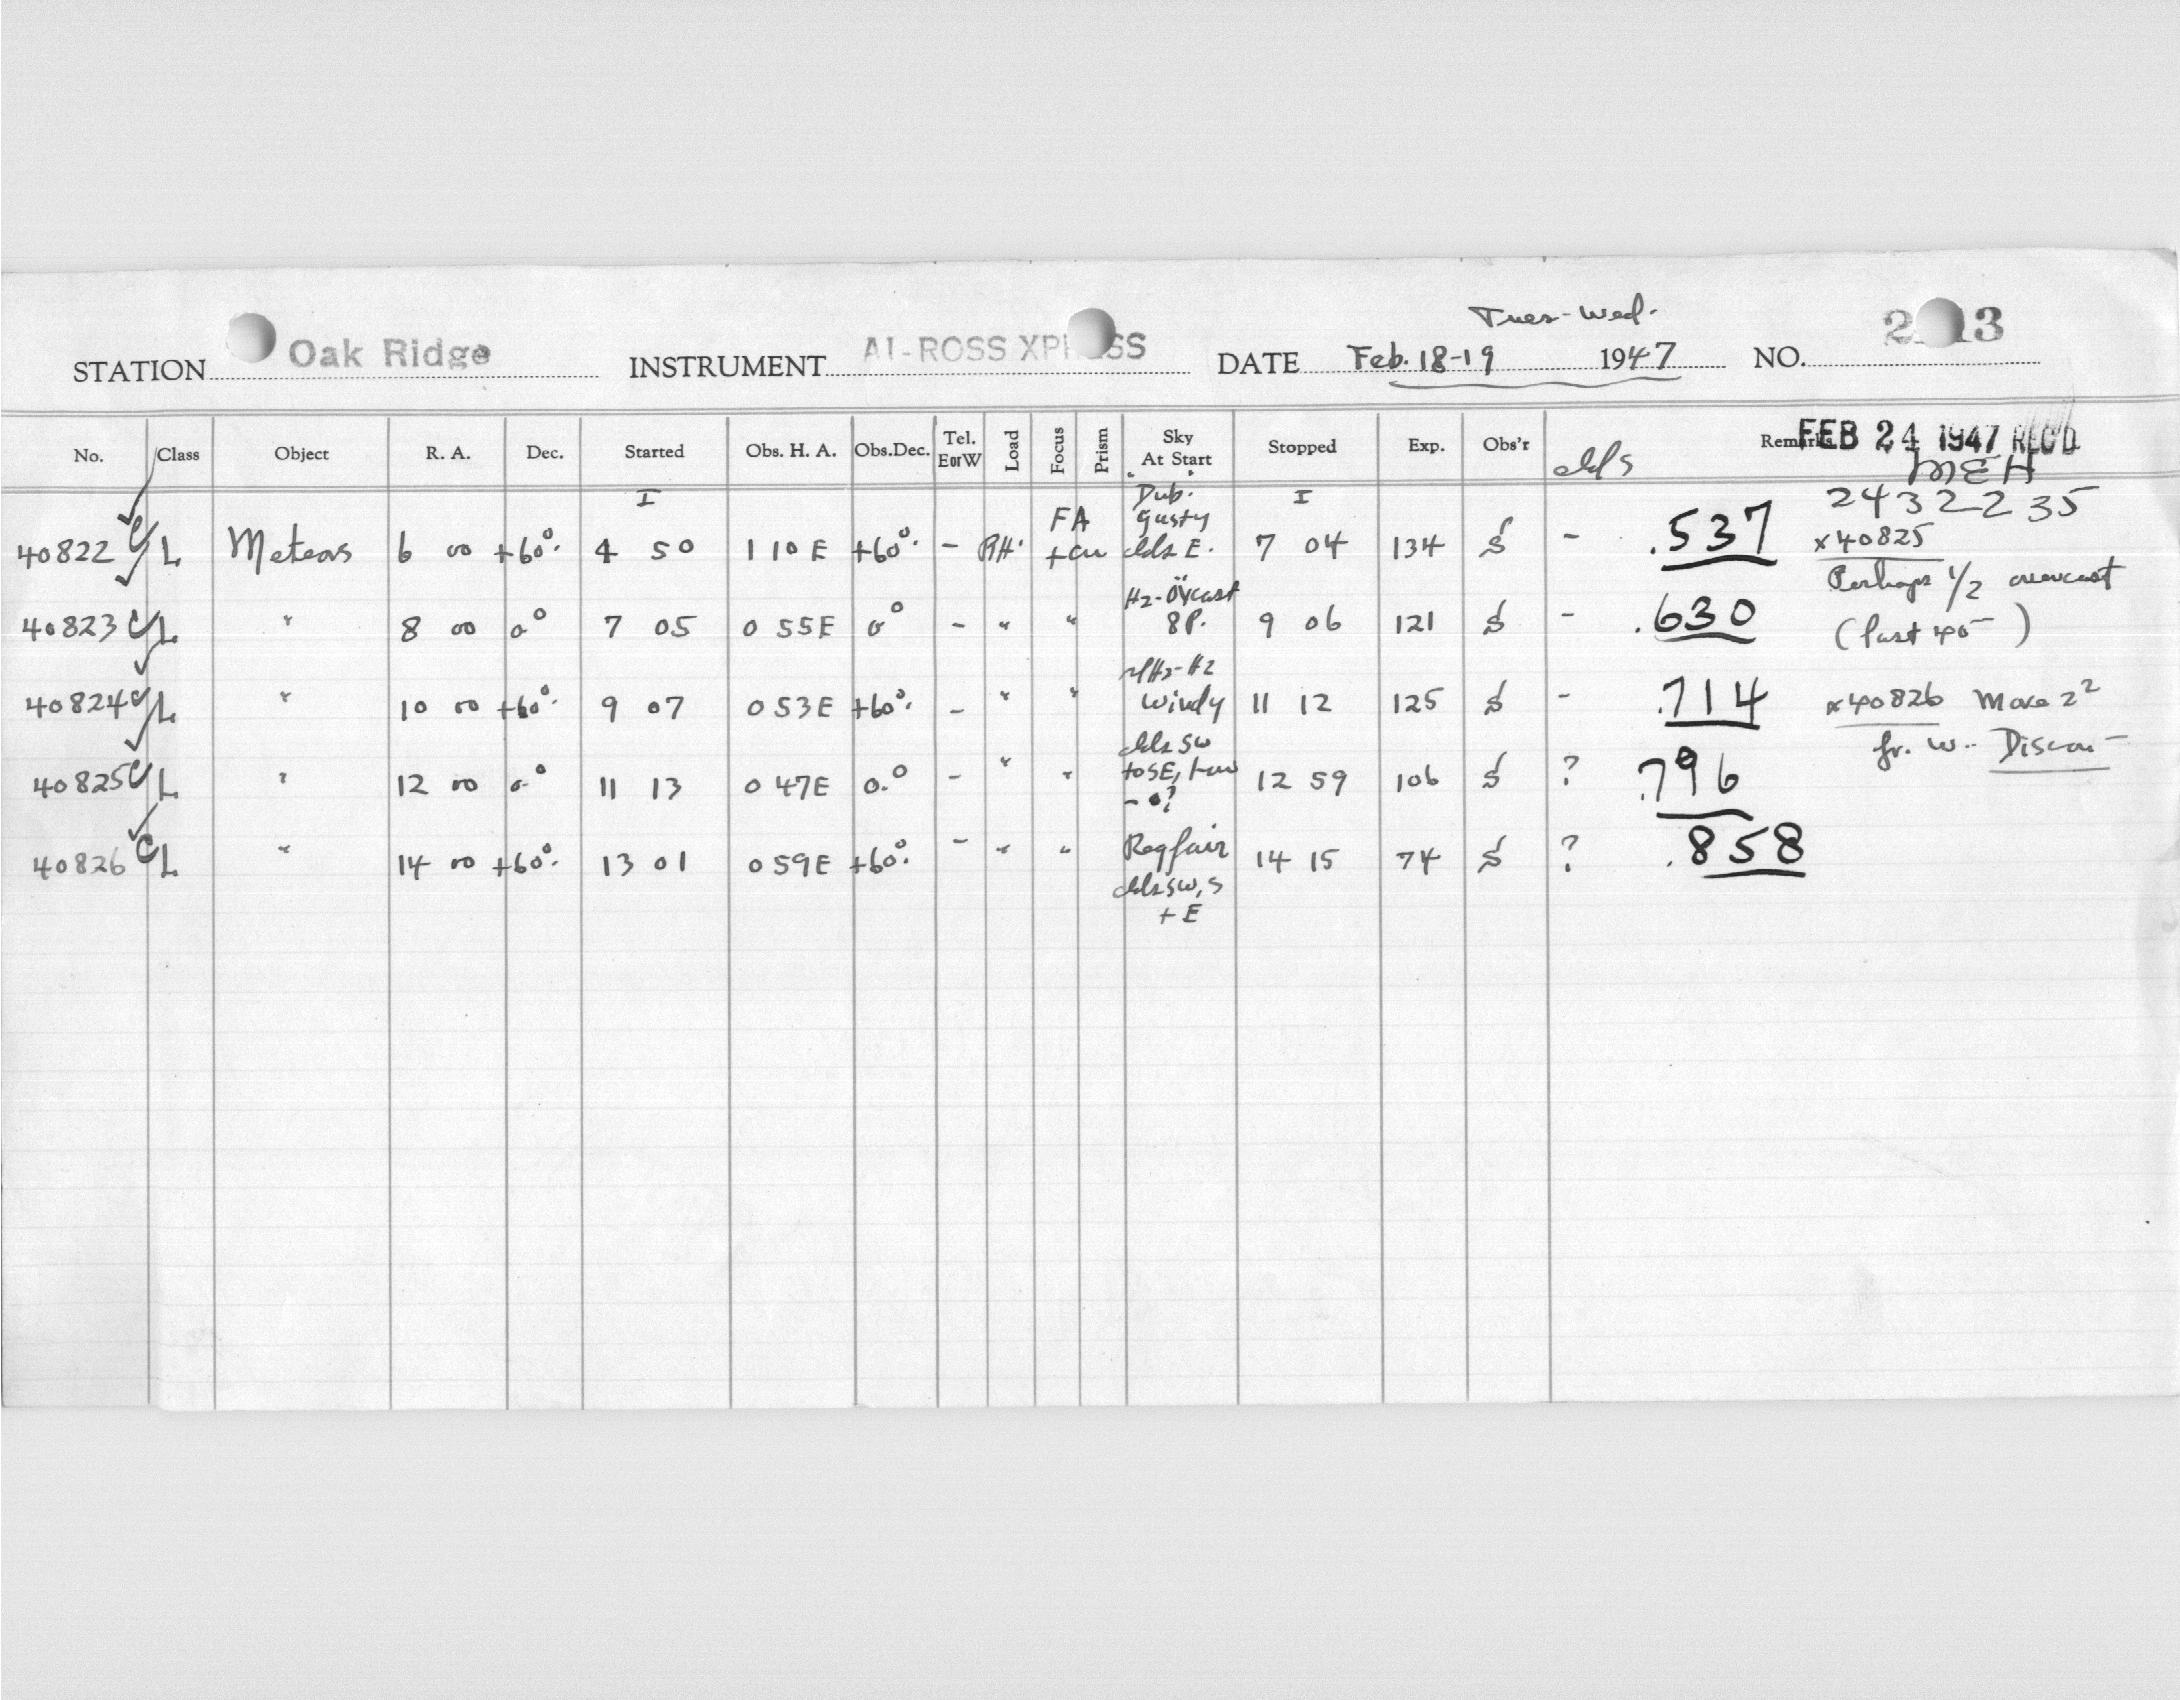 Tues-Wed.
STATION Oak Ridge INSTRUMENT AI-ROSS XP SS DATE Feb. 18-19 1947 NO. 2 13
No. Class Object R. A. Dec. Started Obs. H. A. Obs.Dec. Tel. E or W Load Focus Prism Sky At Start Stopped Exp. Obs'r clds Remarks FEB 24 1947 REC'D
MEH
I Dub. I 2432235
40822 C L Meteors 6 00 +60°. 4 50 1 10 E +60°. - RH. FA Gusty clds E. 7 04 134 S - .537 x40825
Perhaps 1/2 overcast
40823 C L " 8 00 0° 7 05 0 55E 0° - " " Hz-Ovcast 8P. 9 06 121 S - .630 (last 40 )
40824 C L " 10 00 +60°. 9 07 0 53E +60°. - " " Hz-Hz Windy 11 12 125 S - .714 x40826 Move 2²
fr. W.
40825 C L " 12 00 0° 11 13 0 47E 0.° - " " clds SW to SE, - 0? 12 59 106 S ? .796
40826 C L " 14 00 +60°. 13 01 0 59E +60°. - " " Reg fair 14 15 74 S ? .858
clds SW, S
+ E